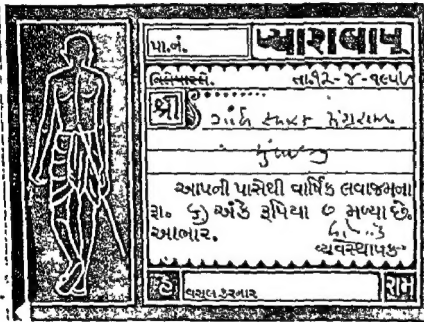 પા.નં. પ્યારાબાપુ
વિલેપારલે. તા.૧૨-૪-૧૯૫૫
શ્રી ગાંધી સ્મારક સંગ્રહાલય
મુંબઈ
આપની પાસેથી વાર્ષિક લવાજમના
રૂા. ૭) અંકે રૂપિયા ૭ મળ્યા છે.
આભાર.
વ્યવસ્થાપક
હે વસુલ કરનાર રામ